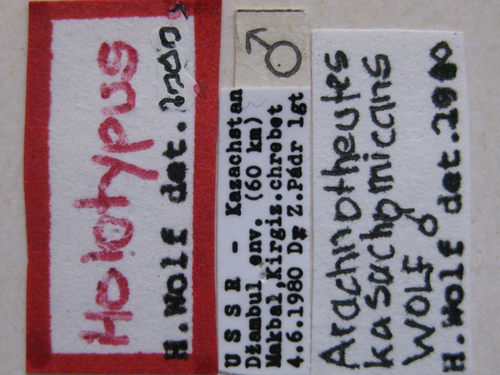 Holotypus
H.Wolf det.
♂
U S S R - Kazachstan
Džambul env. (60 km)
Makbal,Kirgiz.chrebet
4.6.1980 Dr Z.Pádr lgt
Arachnotheutes
kasachomicans
WOLF ♂
H.Wolf det.